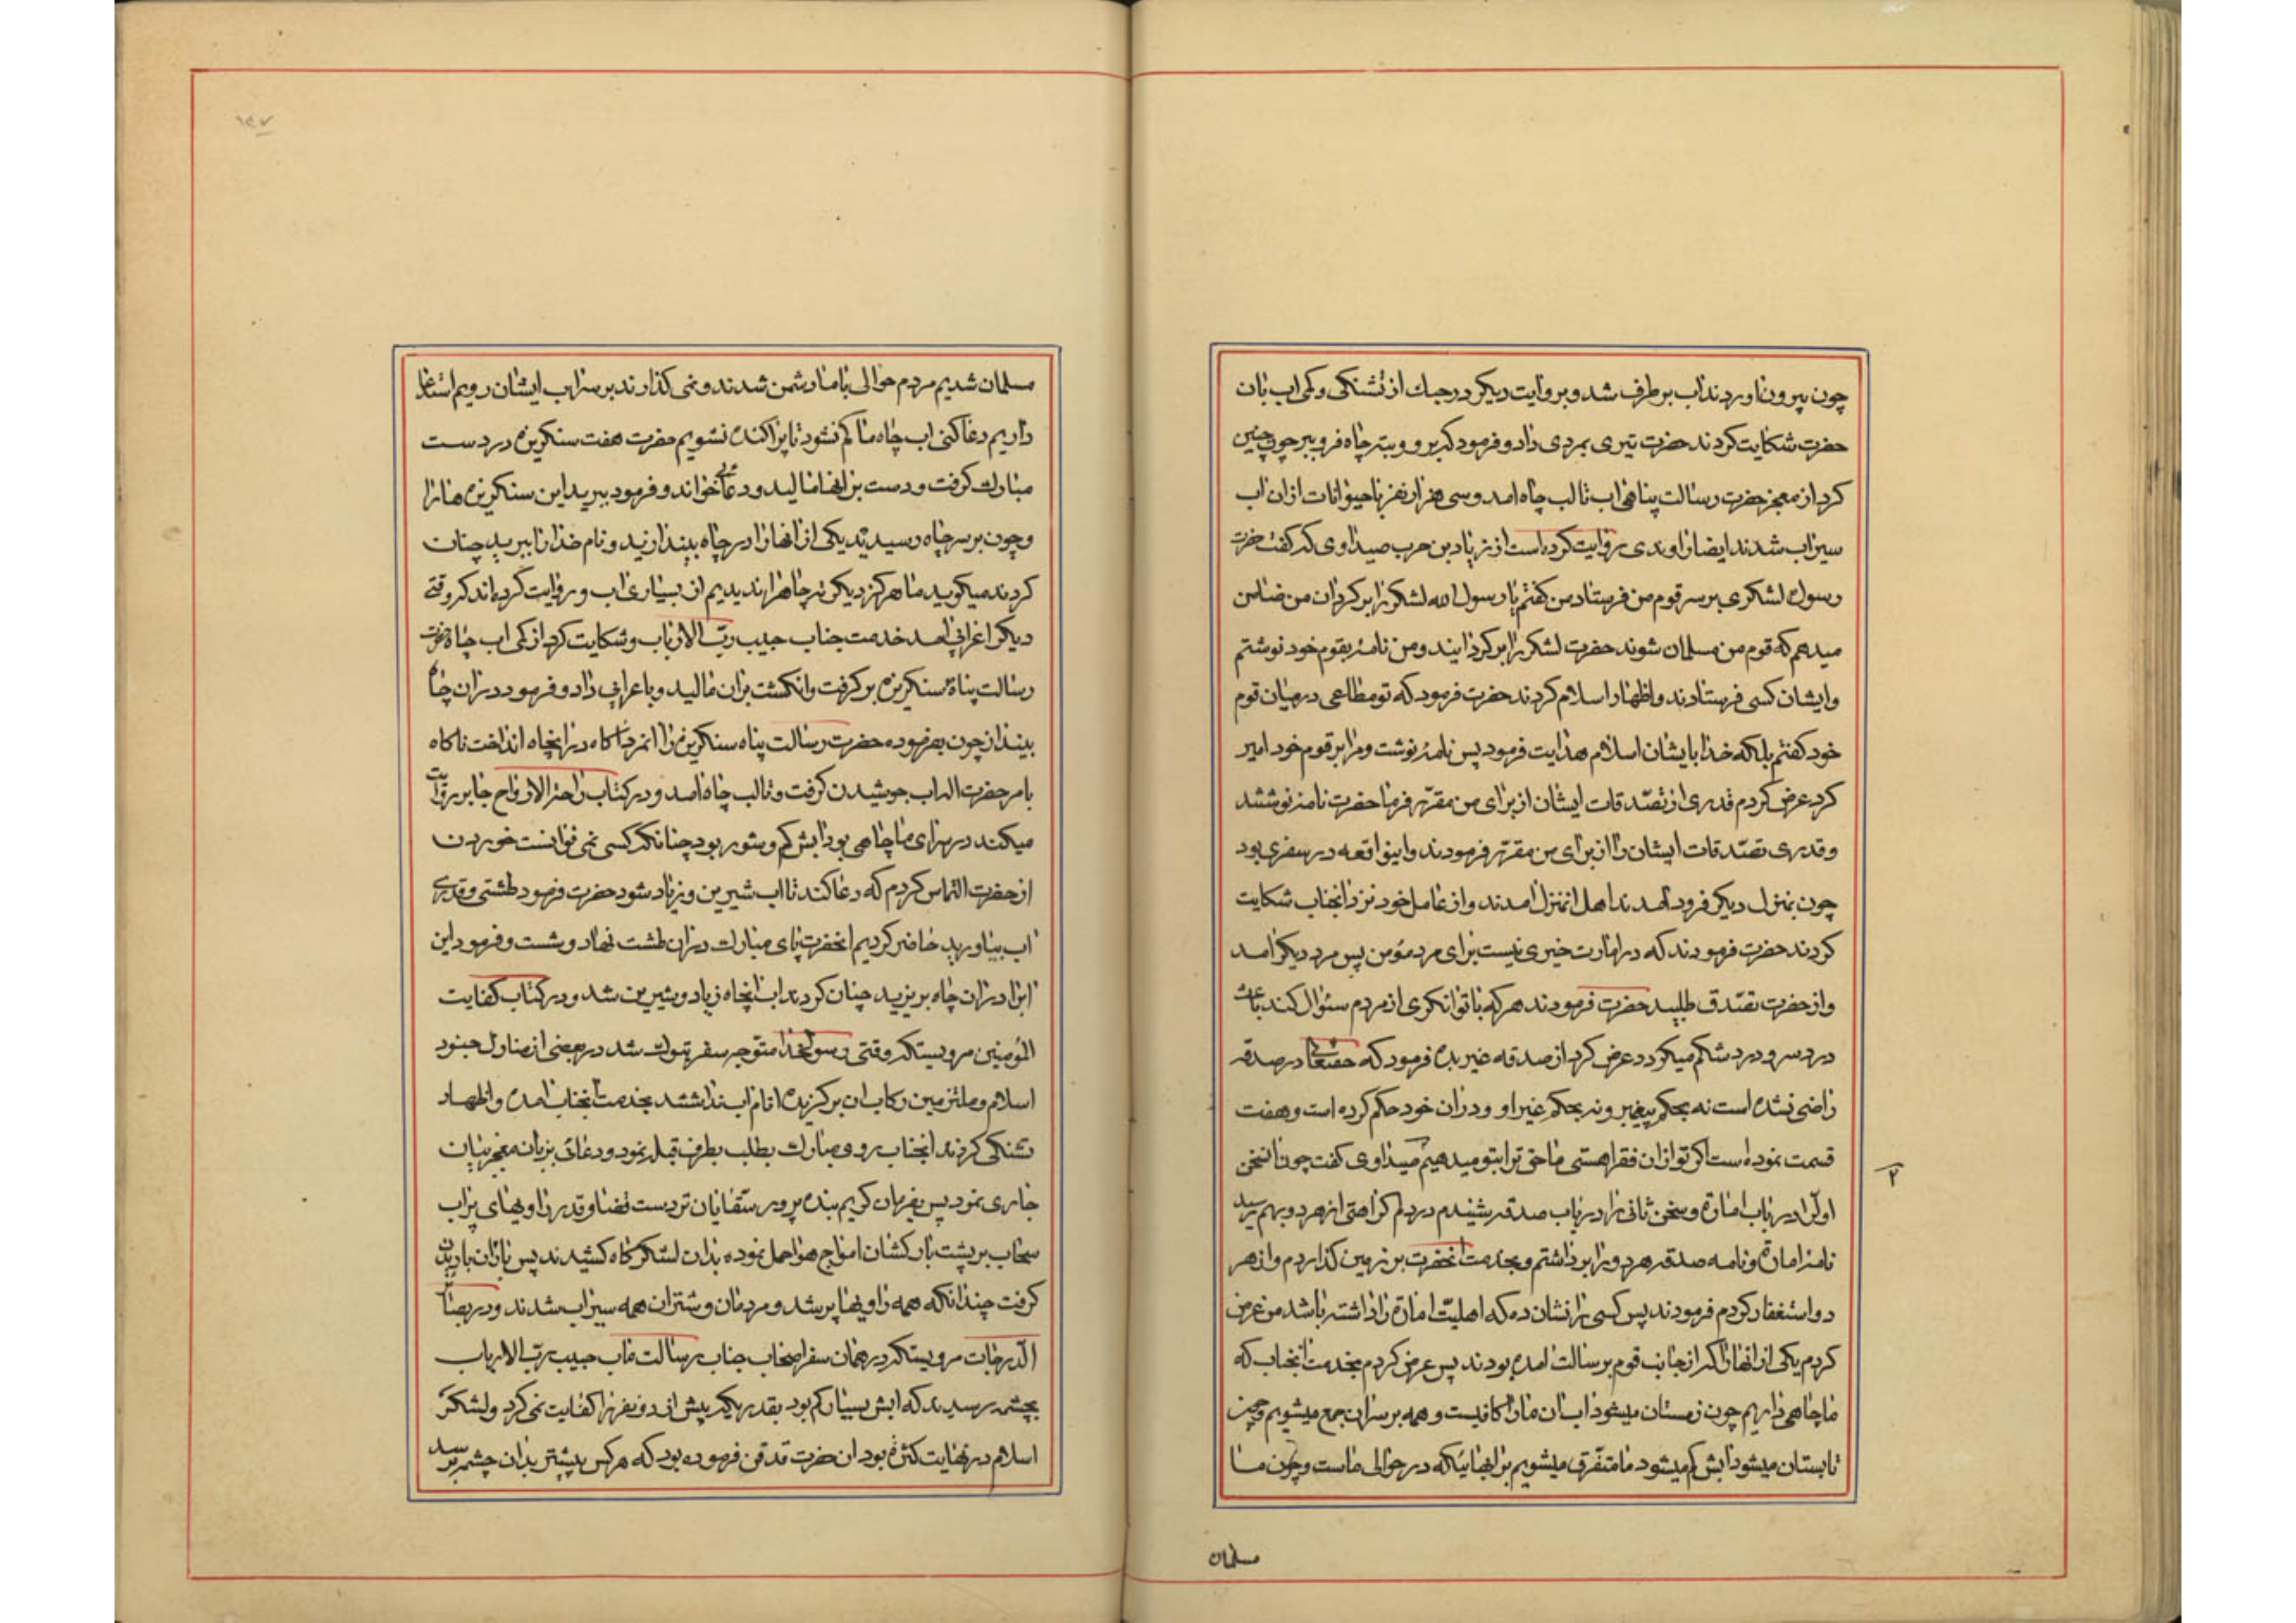 چون بیرون اوردند اب برطرف شد و بروایت دیکر در جنك از تشنکی و کمی اب بان
حضرت شکایت کردند حضرت تیری بمردی داد و فرمود که برو و بته چاه فرو بر چون چنین
کرد از معجز حضرت رسالت پناهی اب تا لب چاه امد و سی هزار نفر با حیوانات از ان اب
سیراب شدند ایضا راوندی روایت کرده است از زیاد بن حرب صیداوی که کفت حضرت
رسول لشکری بر سر قوم من فرستاد من کفتم یا رسول الله لشکر را بر کردان من ضامن
میدهم که قوم من مسلمان شوند حضرت لشکر را بر کردانیدند و من نامهٔ بقوم خود نوشتم
وایشان کسی فرستادند و اظهار اسلام کردند حضرت فرمود که تو مطاعی در میان قوم
خود کفتم بلکه خدا بایشان اسلام هدایت فرمود پس نامهٔ نوشت و مرا بر قوم خود امیر
کرد عرض کردم قدری از تصدقات ایشان از برای من مقرر فرما حضرت نامهٔ نوشتند
و قدری تصدقات ایشان را از برای من مقرر فرمودند و اینواقعه در سفری بود
چون بمنزل دیکر فرود امدند اهل انمنزل امدند و از عامل خود نزد انجناب شکایت
کردند حضرت فرمودند که در امارت خیری نیست برای مرد مؤمن پس مرد دیکر امد
و از حضرت تصدق طلبید حضرت فرمودند هر که با توانکری از مردم سئوال کند باعث
درد سر و درد شکم میکردد عرض کرد از صدقه غیر بده فرمود که حقتعالی در صدقه
راضی نشده است نه بحکم پیغمبر و نه بحکم غیر او و در ان خود حکم کرده است و هفت
قسمت نموده است اکر تو از ان فقرا هستی ما حق ترا بتو میدهیم صیداوی کفت چون سخن
اول را در باب امارة و سخن ثانی را در باب صدقه شنیدم در دلم کراهتی از هر دو بهم رسید
نامهٔ امارة و نامه صدقه هر دو را بر داشتم و بخدمت انحضرت بر زمین کذاردم و از هر
دو استغفار کردم فرمودند پس کسی را نشان ده که اهلیت امارة را داشته باشد من عرض
کردم یکی از انها را که از جانب قوم برسالت امده بودند پس عرض کردم بخدمت انجناب که
ما چاهی داریم چون زمستان میشود اب ان ما را کافیست و همه بر سر ان جمع میشویم و چون
تابستان میشود ابش کم میشود ما متفرق میشویم بر ابهائیکه در حوالی ماست و چون ما
۲
مسلمان
۱۳۷
مسلمان شدیم مردم حوالی با ما دشمن شدند و نمی کذارند بر سر اب ایشان رویم استدعا
داریم دعا کنی اب چاه ما کم نشود تا پراکنده نشویم حضرت هفت سنکریزه در دست
مبارك کرفت و دست بر انها مالید و دعائی خواند و فرمود ببرید این سنکریزه ها را
و چون بر سر چاه رسیدید یکی از انها را در چاه بیندازید و نام خدا را ببرید چنان
کردند میکوید ما هرکز دیکر ته چاه را ندیدیم از بسیاری اب و روایت کرده اند که وقتی
دیکر اعرابی امد خدمت جناب حبیب رب الارباب و شکایت کرد از کمی اب چاه حضرت
رسالت پناه سنکریزه بر کرفت و انکشت بران مالید و باعرابی داد و فرمود در ان چاه
بینداز چون بفرموده حضرت رسالت پناه سنکریزه را انمرد اکاه در انچاه انداخت ناکاه
بامر حضرت اله اب جوشیدن کرفت و تا لب چاه امد و در کتاب راحة الارواح جابر روایت
میکند در سرای ما چاهی بود ابش کم و شور بود چنانکه کسی نمی توانست خوردن
از حضرت التماس کردم که دعا کند تا اب شیرین و زیاد شود حضرت فرمود طشتی و قدری
اب بیاورید حاضر کردیم انحضرت پای مبارك در ان طشت نهاد و شست و فرمود این
ابرا در ان چاه بریزید چنان کردند اب انچاه زیاد و شیرین شد و در کتاب کفایت
المؤمنین مرویست که وقتی رسولخدا متوجه سفر تبوك شد در بعضی از منازل جنود
اسلام و ملتزمین رکاب ان بر کزیده انام اب نداشتند بخدمت انجناب امده و اظهار
تشنکی کردند انجناب روی مبارك بطلب بطرف قبله نمود و دعائی بزبان معجز بیان
جاری نمود پس بفرمان کریم بنده پرور سقایان تردست قضا و قدر راویهای پر اب
سحاب بر پشت بارکشان امواج هوا حمل نموده بدان لشکرکاه کشیدند پس باران باریدن
کرفت چندانکه همه راویها پر شد و مردمان و شتران همه سیراب شدند و در بصائر
الدرجات مرویست که در همان سفر اصحاب جناب رسالت ماب حبیب رب الارباب
بچشمه رسیدند که ابش بسیار کم بود بقدریکه بیش از دو نفر را کفایت نمی کرد و لشکر
اسلام در نهایت کثرة بود ان حضرت قدقن فرموده بود که هر کس پیشتر بدان چشمه برسد